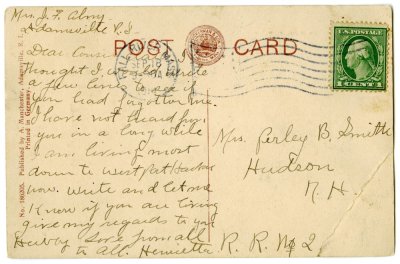 Mrs. J. F. Almy
Adamsville R.I
POST CARD
Dear Cousin
thought I would write
a few lines to see if
you had forgotten me.
I have not heard from
you in a long while
I am living most
down to West Port Harbor
now. Write and let me
Know if you are living
give my regards to your
Hubby Love from all
to all. Henrietta
Mrs. Perley B. Smith
Hudson
N. H.
R. R. No 2
FALL RIVER MASS
SEP 18
U.S. POSTAGE
1 CENT 1
No. 186035 Published by A. Manchester, Adamsville, R. I.
Printed in Germany